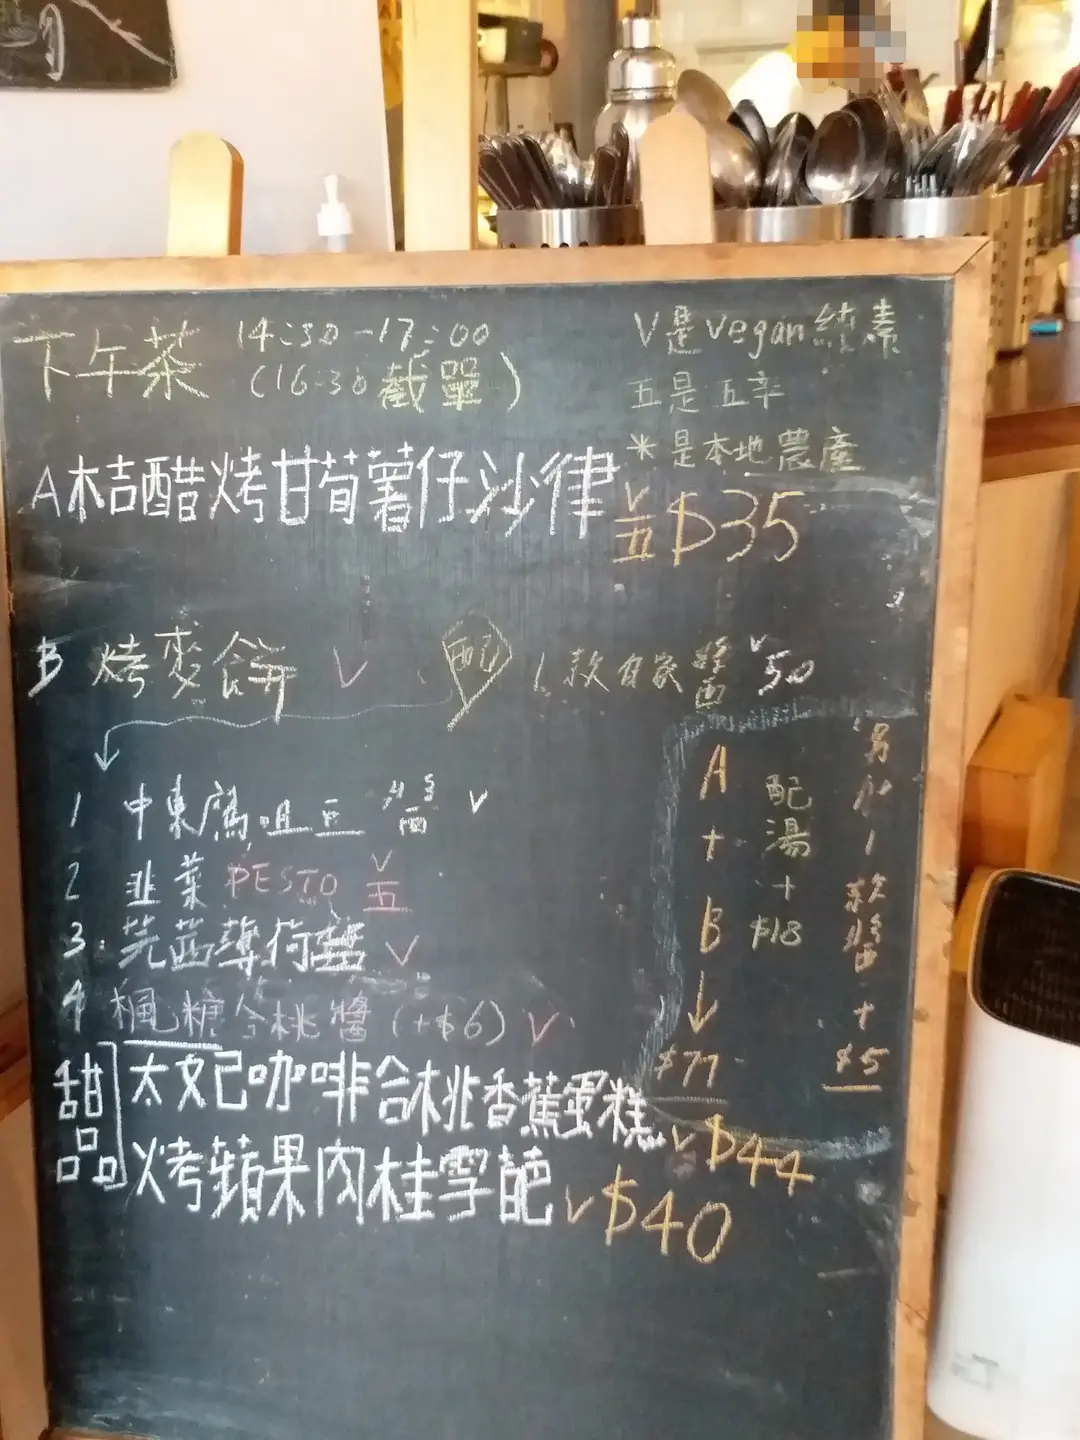 下午茶 14:30-17:00
(16:30截單)
V是vegan純素
五是五辛
*是本地農產
A桔醋烤甘荀薯仔沙律 V五 $35
B 烤麥餅 V 配 1款自家醬 V 50
1 中東鷹咀豆醬 V
2 韭菜PESTO V五
3 芫茜薄荷醬 V
4 楓糖合桃醬(+$6) V
A+B→$77
配湯+$18
另加1款醬+$5
甜品
太妃咖啡合桃香蕉蛋糕 V $44
烤蘋果肉桂雪葩 V $40